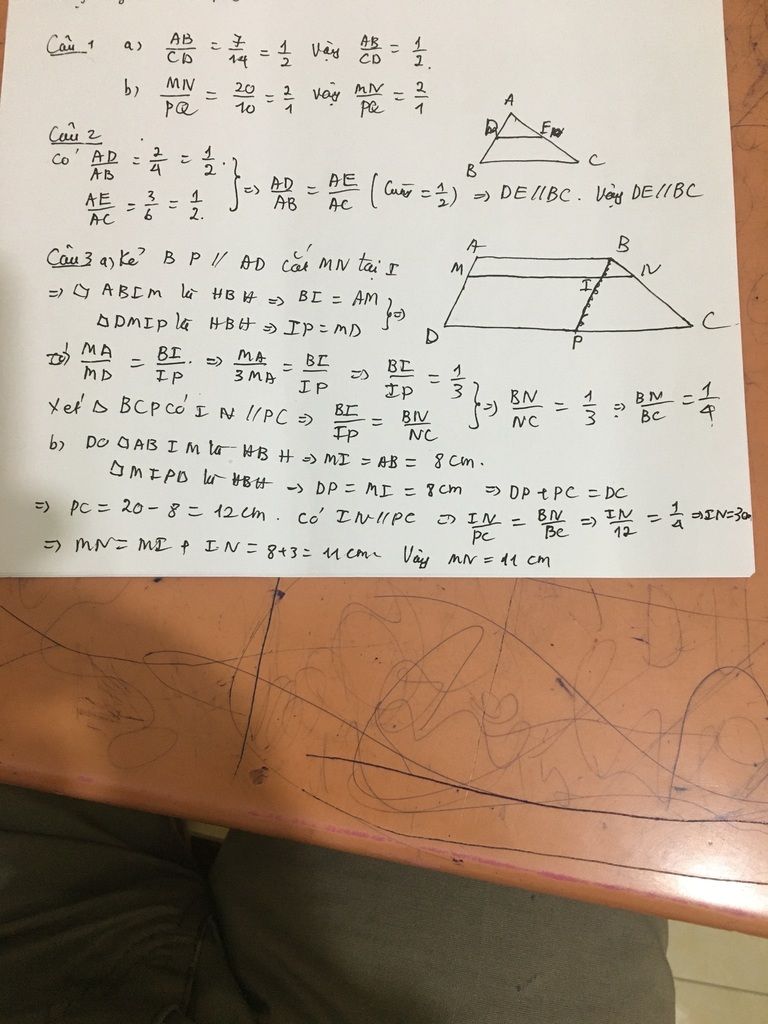 Câu 1 a) AB/CD = 7/14 = 1/2 vậy AB/CD = 1/2.
b) MN/PQ = 20/10 = 2/1 vậy MN/PQ = 2/1
Câu 2
Có AD/AB = 2/4 = 1/2.
AE/AC = 3/6 = 1/2. } => AD/AB = AE/AC (Cùng = 1/2) => DE//BC. Vậy DE//BC
A
D E
B C
Câu 3 a) Kẻ BP // AD cắt MN tại I
=> □ ABIM là HBH => BI = AM
□DMIP là HBH => IP = MD } =>
Có MA/MD = BI/IP. => MA/3MA = BI/IP => BI/IP = 1/3
Xét Δ BCP có IN//PC => BI/IP = BN/NC } => BN/NC = 1/3 => BN/BC = 1/4
A B
M I N
D P C
b) Do □ABIM là HBH => MI = AB = 8cm.
□MIPD là HBH -> DP = MI = 8cm => DP + PC = DC
=> PC = 20 - 8 = 12cm. Có IN//PC => IN/PC = BN/BC => IN/12 = 1/4 => IN=3cm
=> MN = MI + IN = 8+3 = 11cm Vậy MN = 11 cm